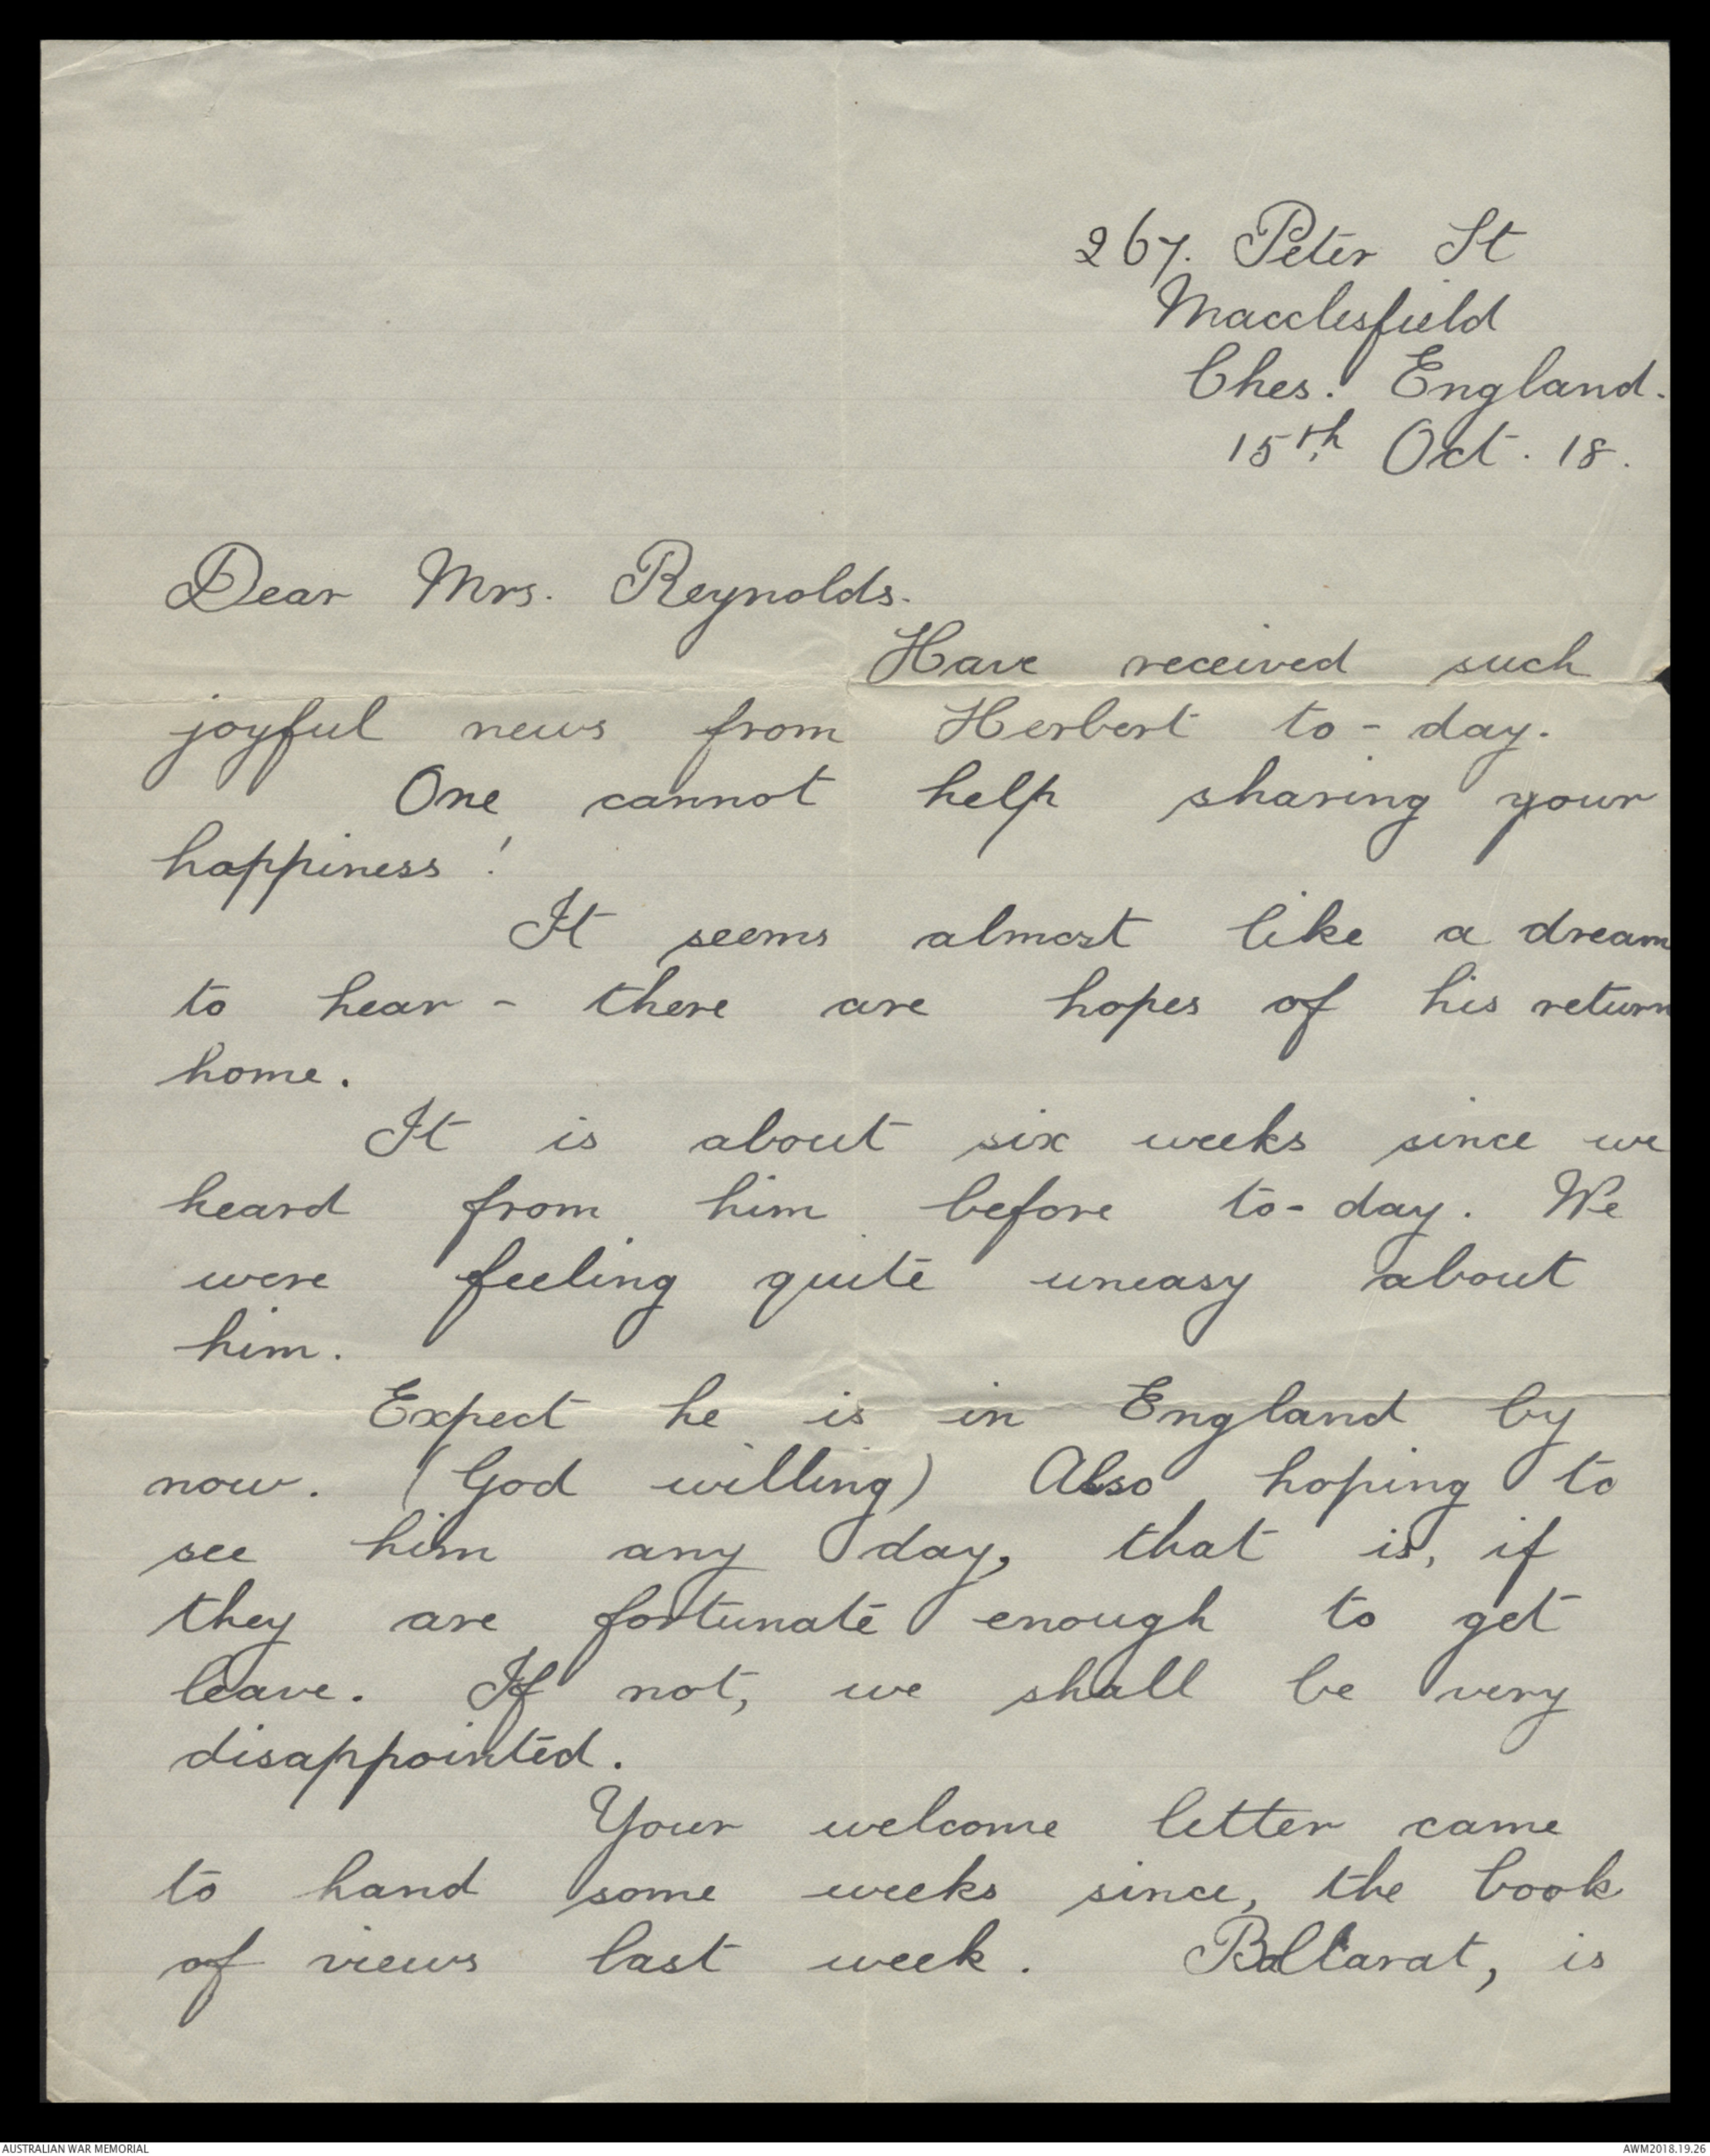 267. Peter St
Macclesfield
Ches. England.
15th Oct. 18.
Dear Mrs. Reynolds.
Have received such
joyful news from Herbert to-day.
One cannot help sharing your
happiness!
It seems almost like a dream
to hear - there are hopes of his return
home.
It is about six weeks since we
heard from him before to-day. We
were feeling quite uneasy about
him.
Expect he is in England by
now. (God willing) Also hoping to
see him any day, that is, if
they are fortunate enough to get
leave. If not, we shall be very
disappointed.
Your welcome letter came
to hand some weeks since, the book
of views last week. Ballarat, is
AUSTRALIAN WAR MEMORIAL
AWM2018.19.26